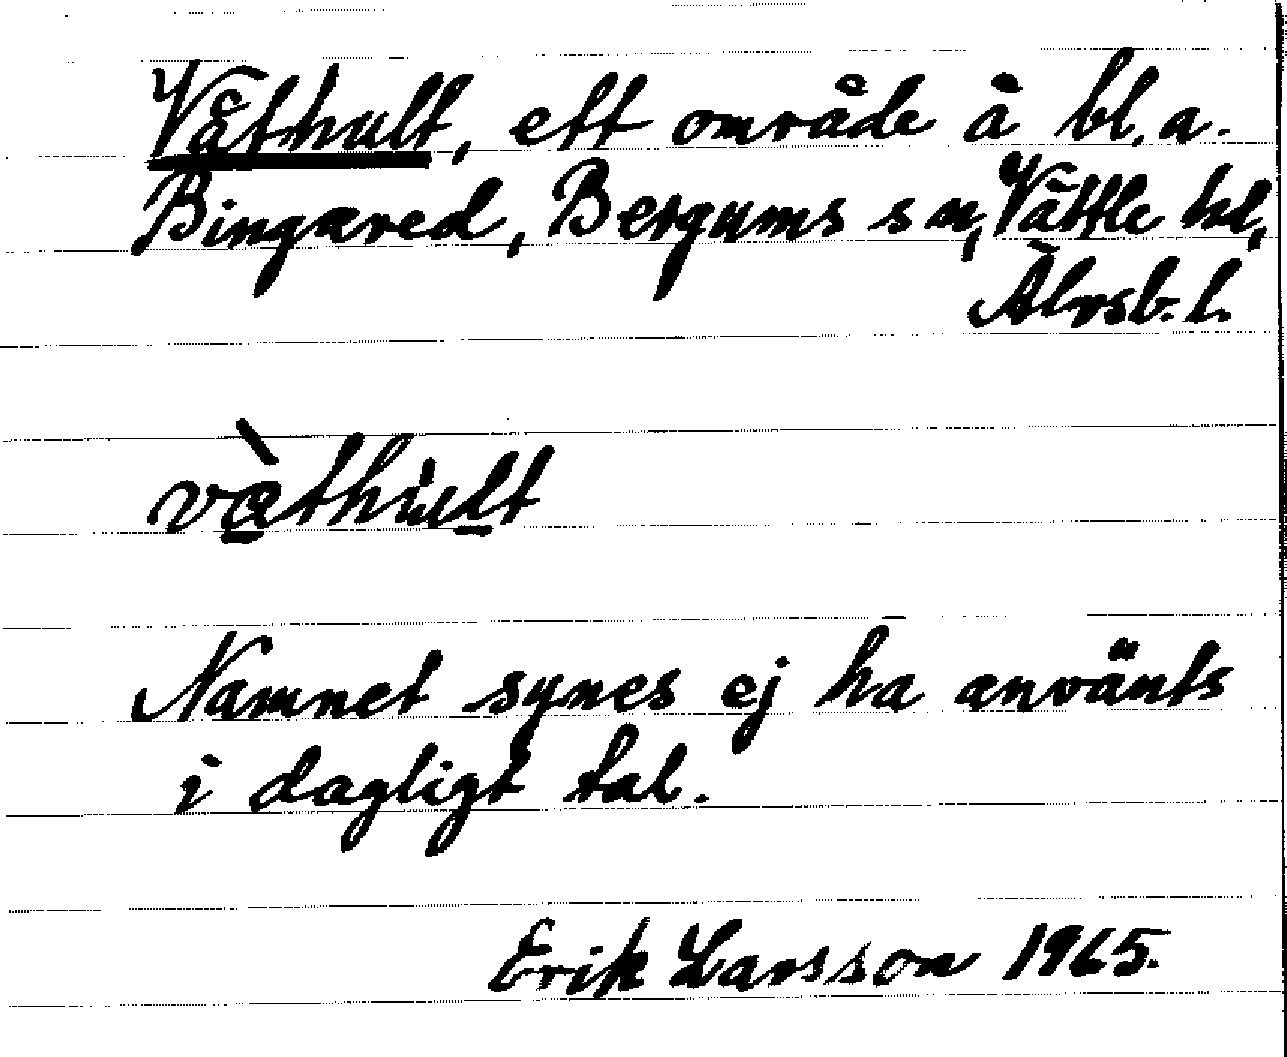 Våthult, ett område å bl.a.
Bingared, Bergums sn, Vättle hd,
Älvsb. l.
vàthult
Namnet synes ej ha använts
i dagligt tal.
Erik Larsson 1965.